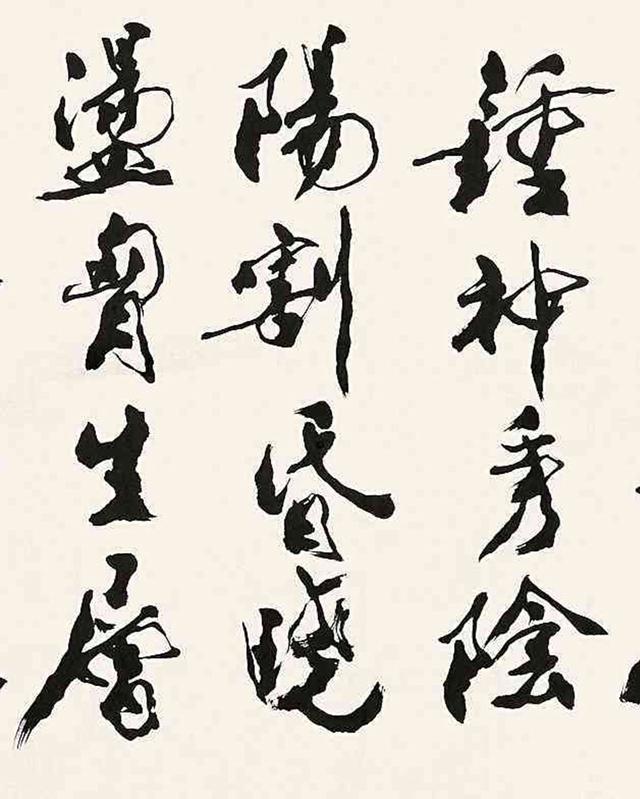 鍾神秀陰
陽割昏曉
盪胷生層